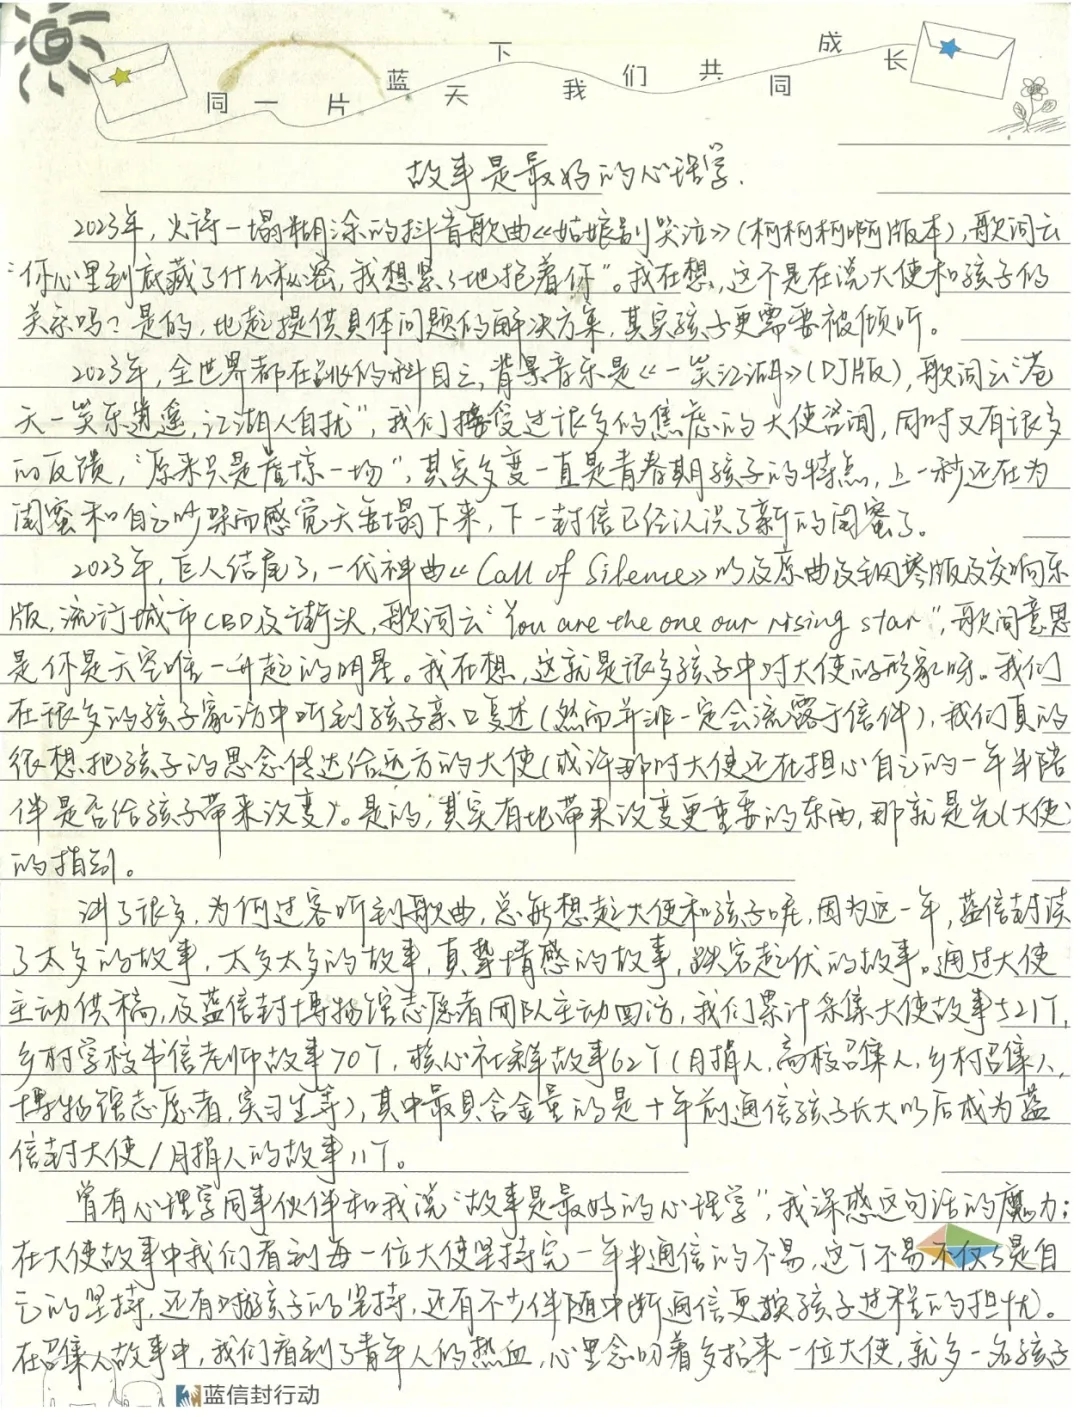 同一片蓝天下我们共同成长
故事是最好的心理学.
2023年,火得一塌糊涂的抖音歌曲《姑娘别哭泣》(柯柯柯啊版本),歌词云
“你心里到底藏了什么秘密,我想紧紧地抱着你”。我在想,这不是在说大使和孩子的
关系吗?是的,比起提供具体问题的解决方案,其实孩子更需要被倾听。
2023年,全世界都在跳的科目三,背景音乐是《一笑江湖》(DJ版),歌词云“苍
天一笑乐逍遥,江湖人自扰”,我们接受过很多的焦虑的大使咨询,同时又有很多
的反馈,“原来只是虚惊一场”,其实多变一直是青春期孩子的特点,上一秒还在为
闺蜜和自己吵架而感觉天要塌下来,下一封信已经认识了新的闺蜜了。
2023年,巨人结尾了,一代神曲《Call of Silence》的及原曲及钢琴版及交响乐
版,流行城市CBD及街头,歌词云“You are the one our rising star”,歌词意思
是你是天空唯一升起的明星。我在想,这就是很多孩子中对大使的形象呀。我们
在很多的孩子家访中听到孩子亲口复述(然而并非一定会流露于信件),我们真的
很想把孩子的思念传达给远方的大使(或许那时大使还在担心自己的一年半陪
伴是否给孩子带来改变)。是的,其实有比带来改变更重要的东西,那就是光(大使)
的指引。
讲了很多,为何过客听到歌曲,总能想起大使和孩子呢,因为这一年,蓝信封读
了太多的故事,太多太多的故事,真挚情感的故事,跌宕起伏的故事。通过大使
主动供稿,及蓝信封博物馆志愿者团队主动回访,我们累计采集大使故事521个,
乡村学校书信老师故事70个,核心社群故事62个(月捐人,高校召集人,乡村召集人,
博物馆志愿者,实习生等),其中最具含金量的是十年前通信孩子长大以后成为蓝
信封大使/月捐人的故事11个。
曾有心理学同事伙伴和我说“故事是最好的心理学”,我深感这句话的魔力;
在大使故事中我们看到每一位大使坚持完一年半通信的不易,这个不易不仅仅是自
己的坚持,还有对孩子的坚持,还有不少伴随中断通信更换孩子过程的担忧。
在召集人故事中,我们看到了青年人的热血,心里念叨着多招来一位大使,就多一名孩子
蓝信封行动